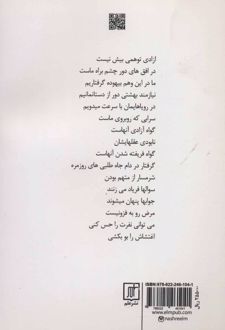 آزادی توهمی بیش نیست
در افق های دور چشم براه ماست
ما در این وهم بیهوده گرفتاریم
نیازمند بهشتی دور از دستانمانیم
در رویاهایمان با سرعت میدویم
سرابی که روبروی ماست
گواه آزادی آنهاست
نابودی عقلهایشان
گواه فریفته شدن آنهاست
گرفتار در دام جاه طلبی های روزمره
شرمسار از متهم بودن
سوالها فریاد می زنند
جوابها پنهان میشوند
مرض رو به فزونیست
می توانی نفرت را حس کنی
اغتشاش را بو بکشی
نشر علم
ISBN: 978-622-246-104-1
www.elmpub.com
nashreelm